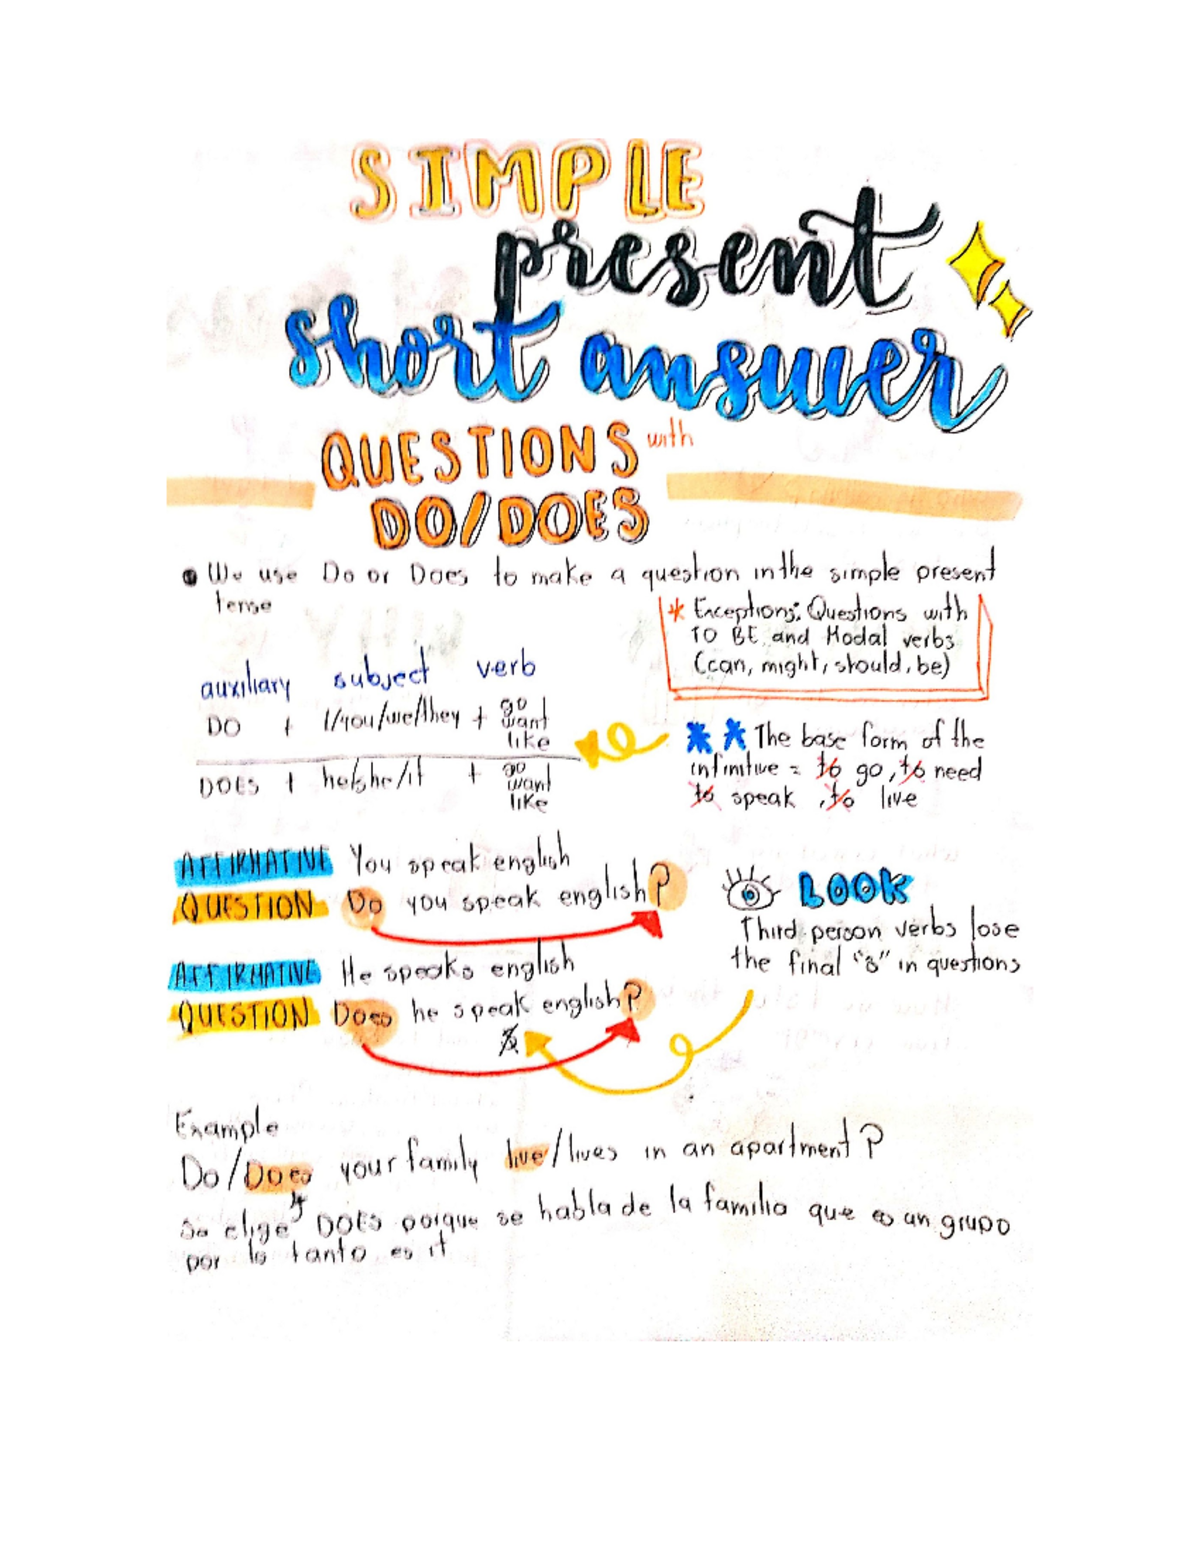 SIMPLE
present
short answer
QUESTIONS with
DO/DOES
We use Do or Does to make a question in the simple present
tense
* Exceptions: Questions with
TO BE and Modal verbs
(can, might, should, be)
auxiliary subject verb
DO + I/you/we/they + go
want
like
DOES + he/she/it + go
want
like
** The base form of the
infinitive = to go, to need
to speak, to live
AFFIRMATIVE You speak english
QUESTION Do you speak english?
LOOK
Third person verbs lose
the final "s" in questions
AFFIRMATIVE He speaks english
QUESTION Does he speak english?
s
Example
Do/Does your family live/lives in an apartment?
Se elige DOES porque se habla de la familia que es un grupo
por lo tanto es it